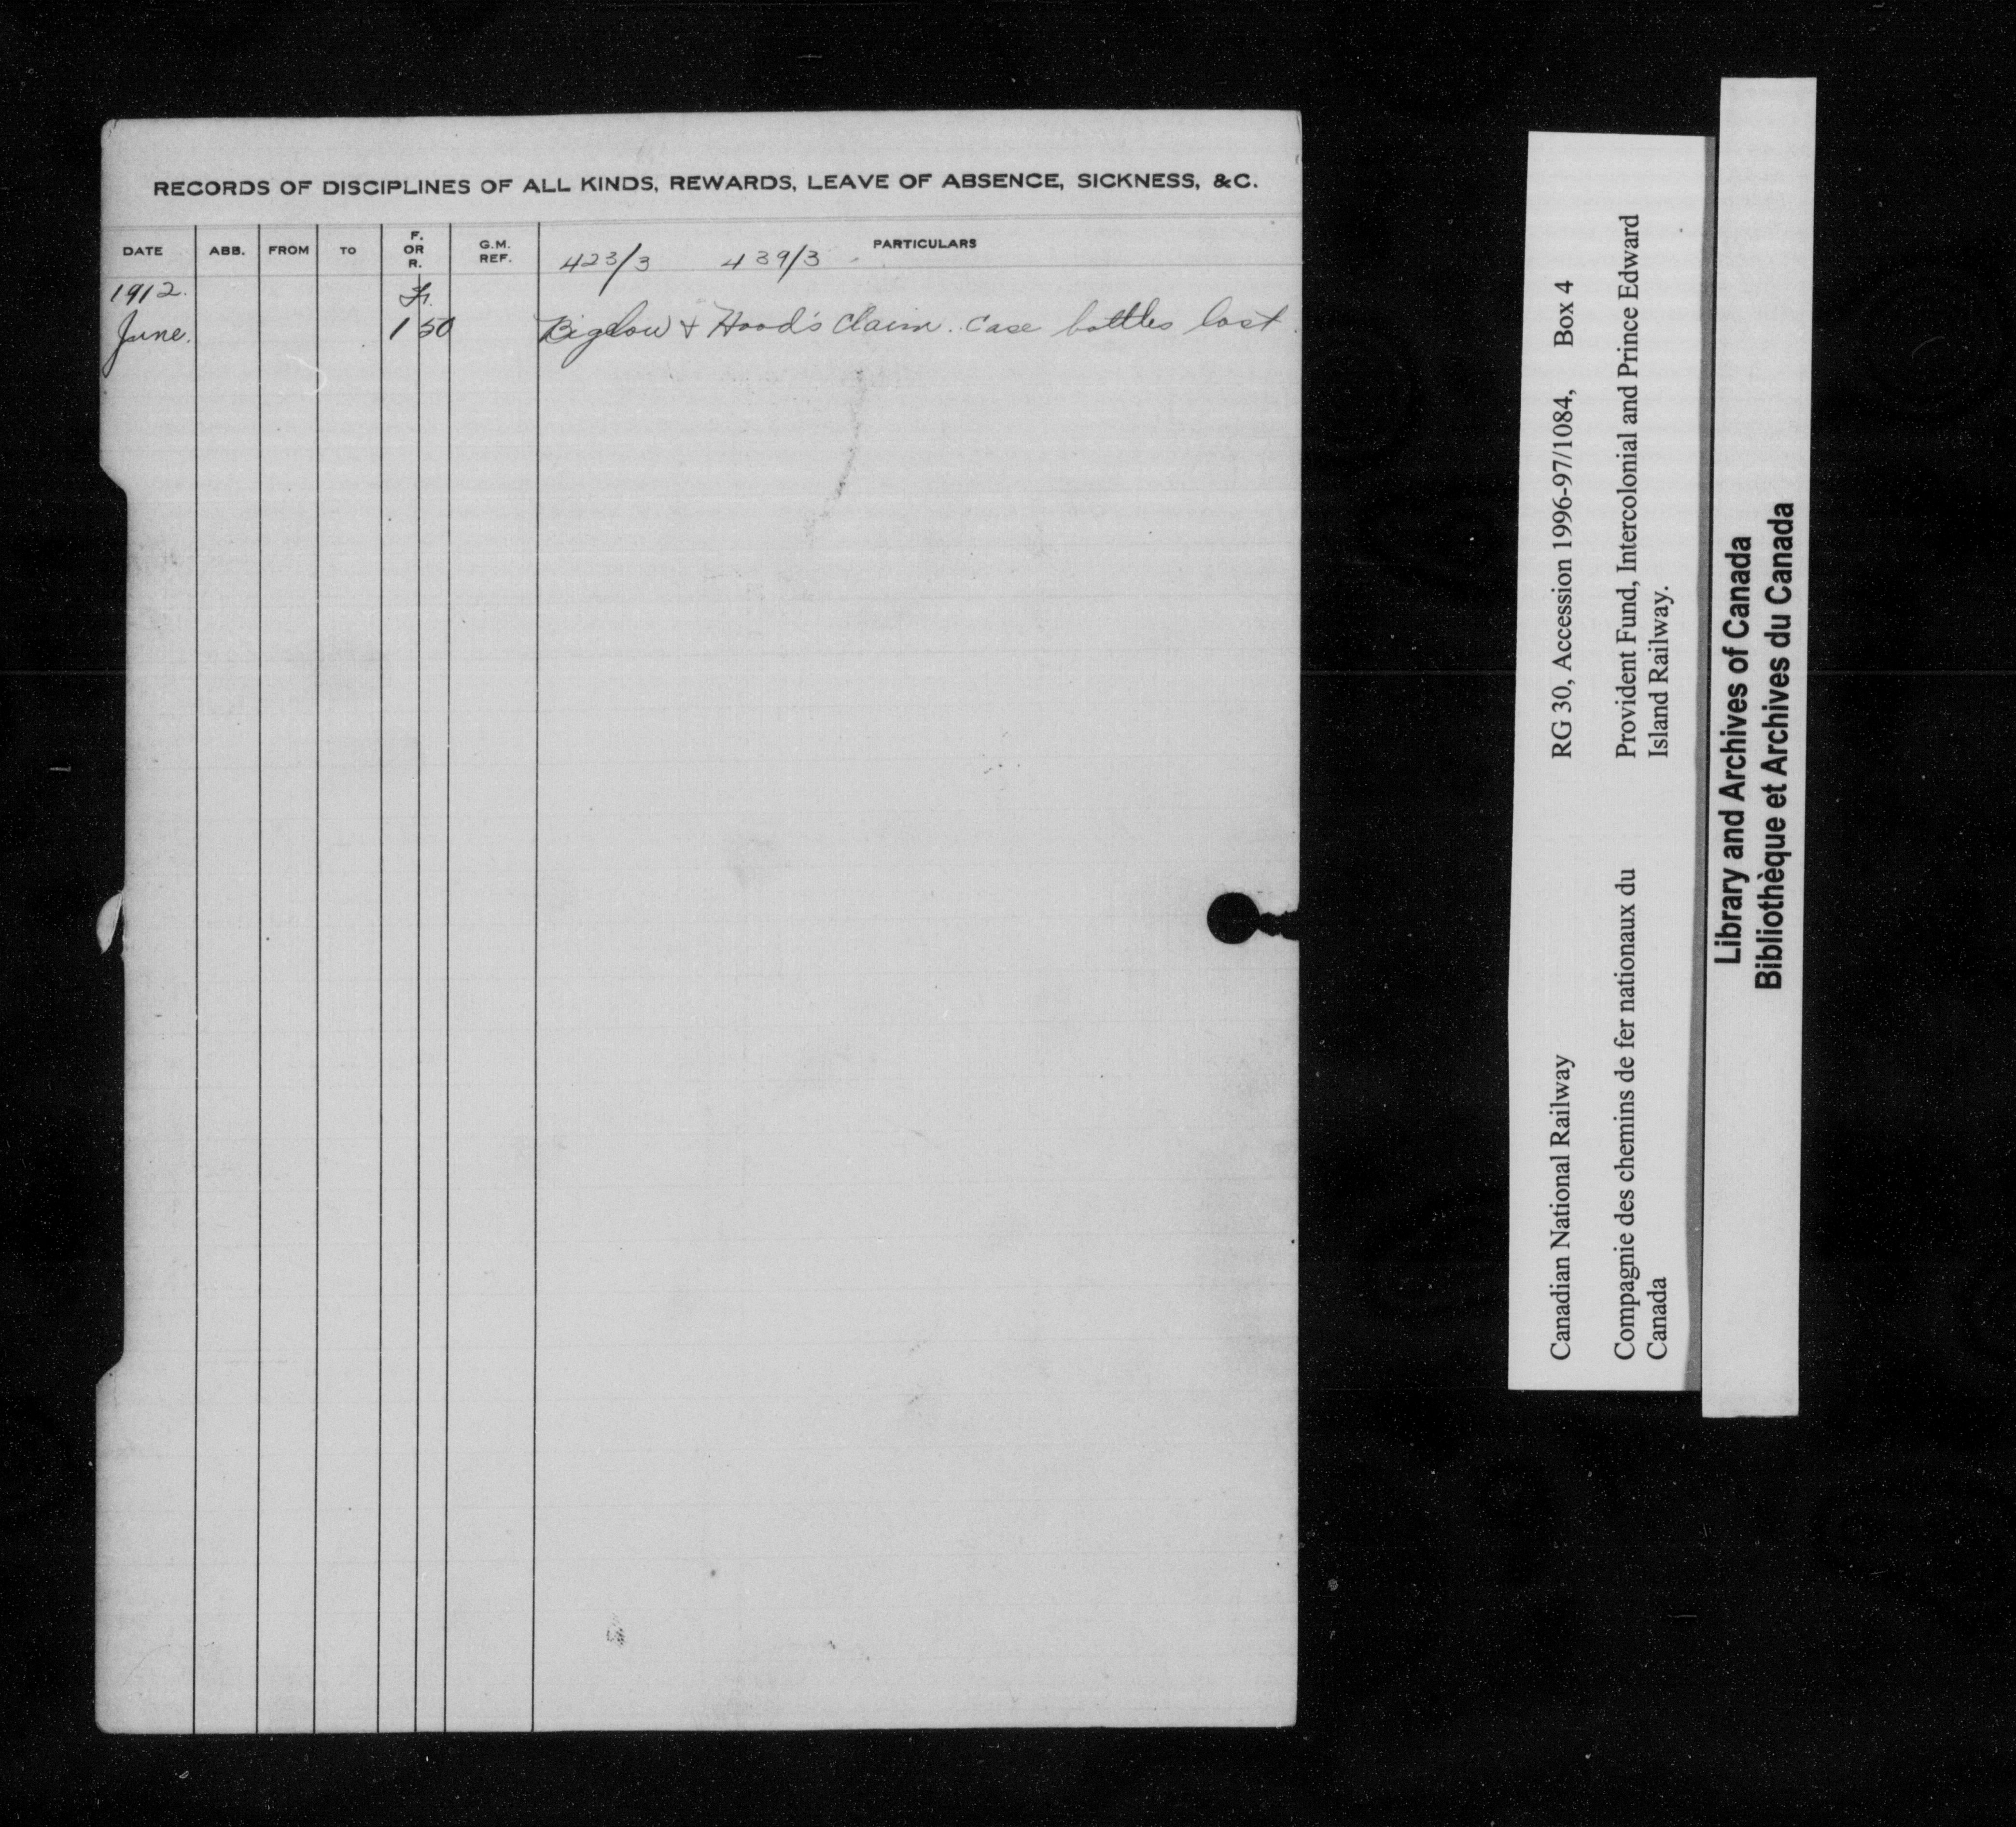 RECORDS OF DISCIPLINES OF ALL KINDS, REWARDS, LEAVE OF ABSENCE, SICKNESS, &C.
DATE ABB. FROM TO F. OR R. G.M. REF. PARTICULARS
423/3 439/3
1912. F.
June. 1 50 Bigelow & Hood's Claim. Case bottles lost.
Canadian National Railway RG 30, Accession 1996-97/1084, Box 4
Compagnie des chemins de fer nationaux du Provident Fund, Intercolonial and Prince Edward
Canada Island Railway.
Library and Archives of Canada
Bibliothèque et Archives du Canada